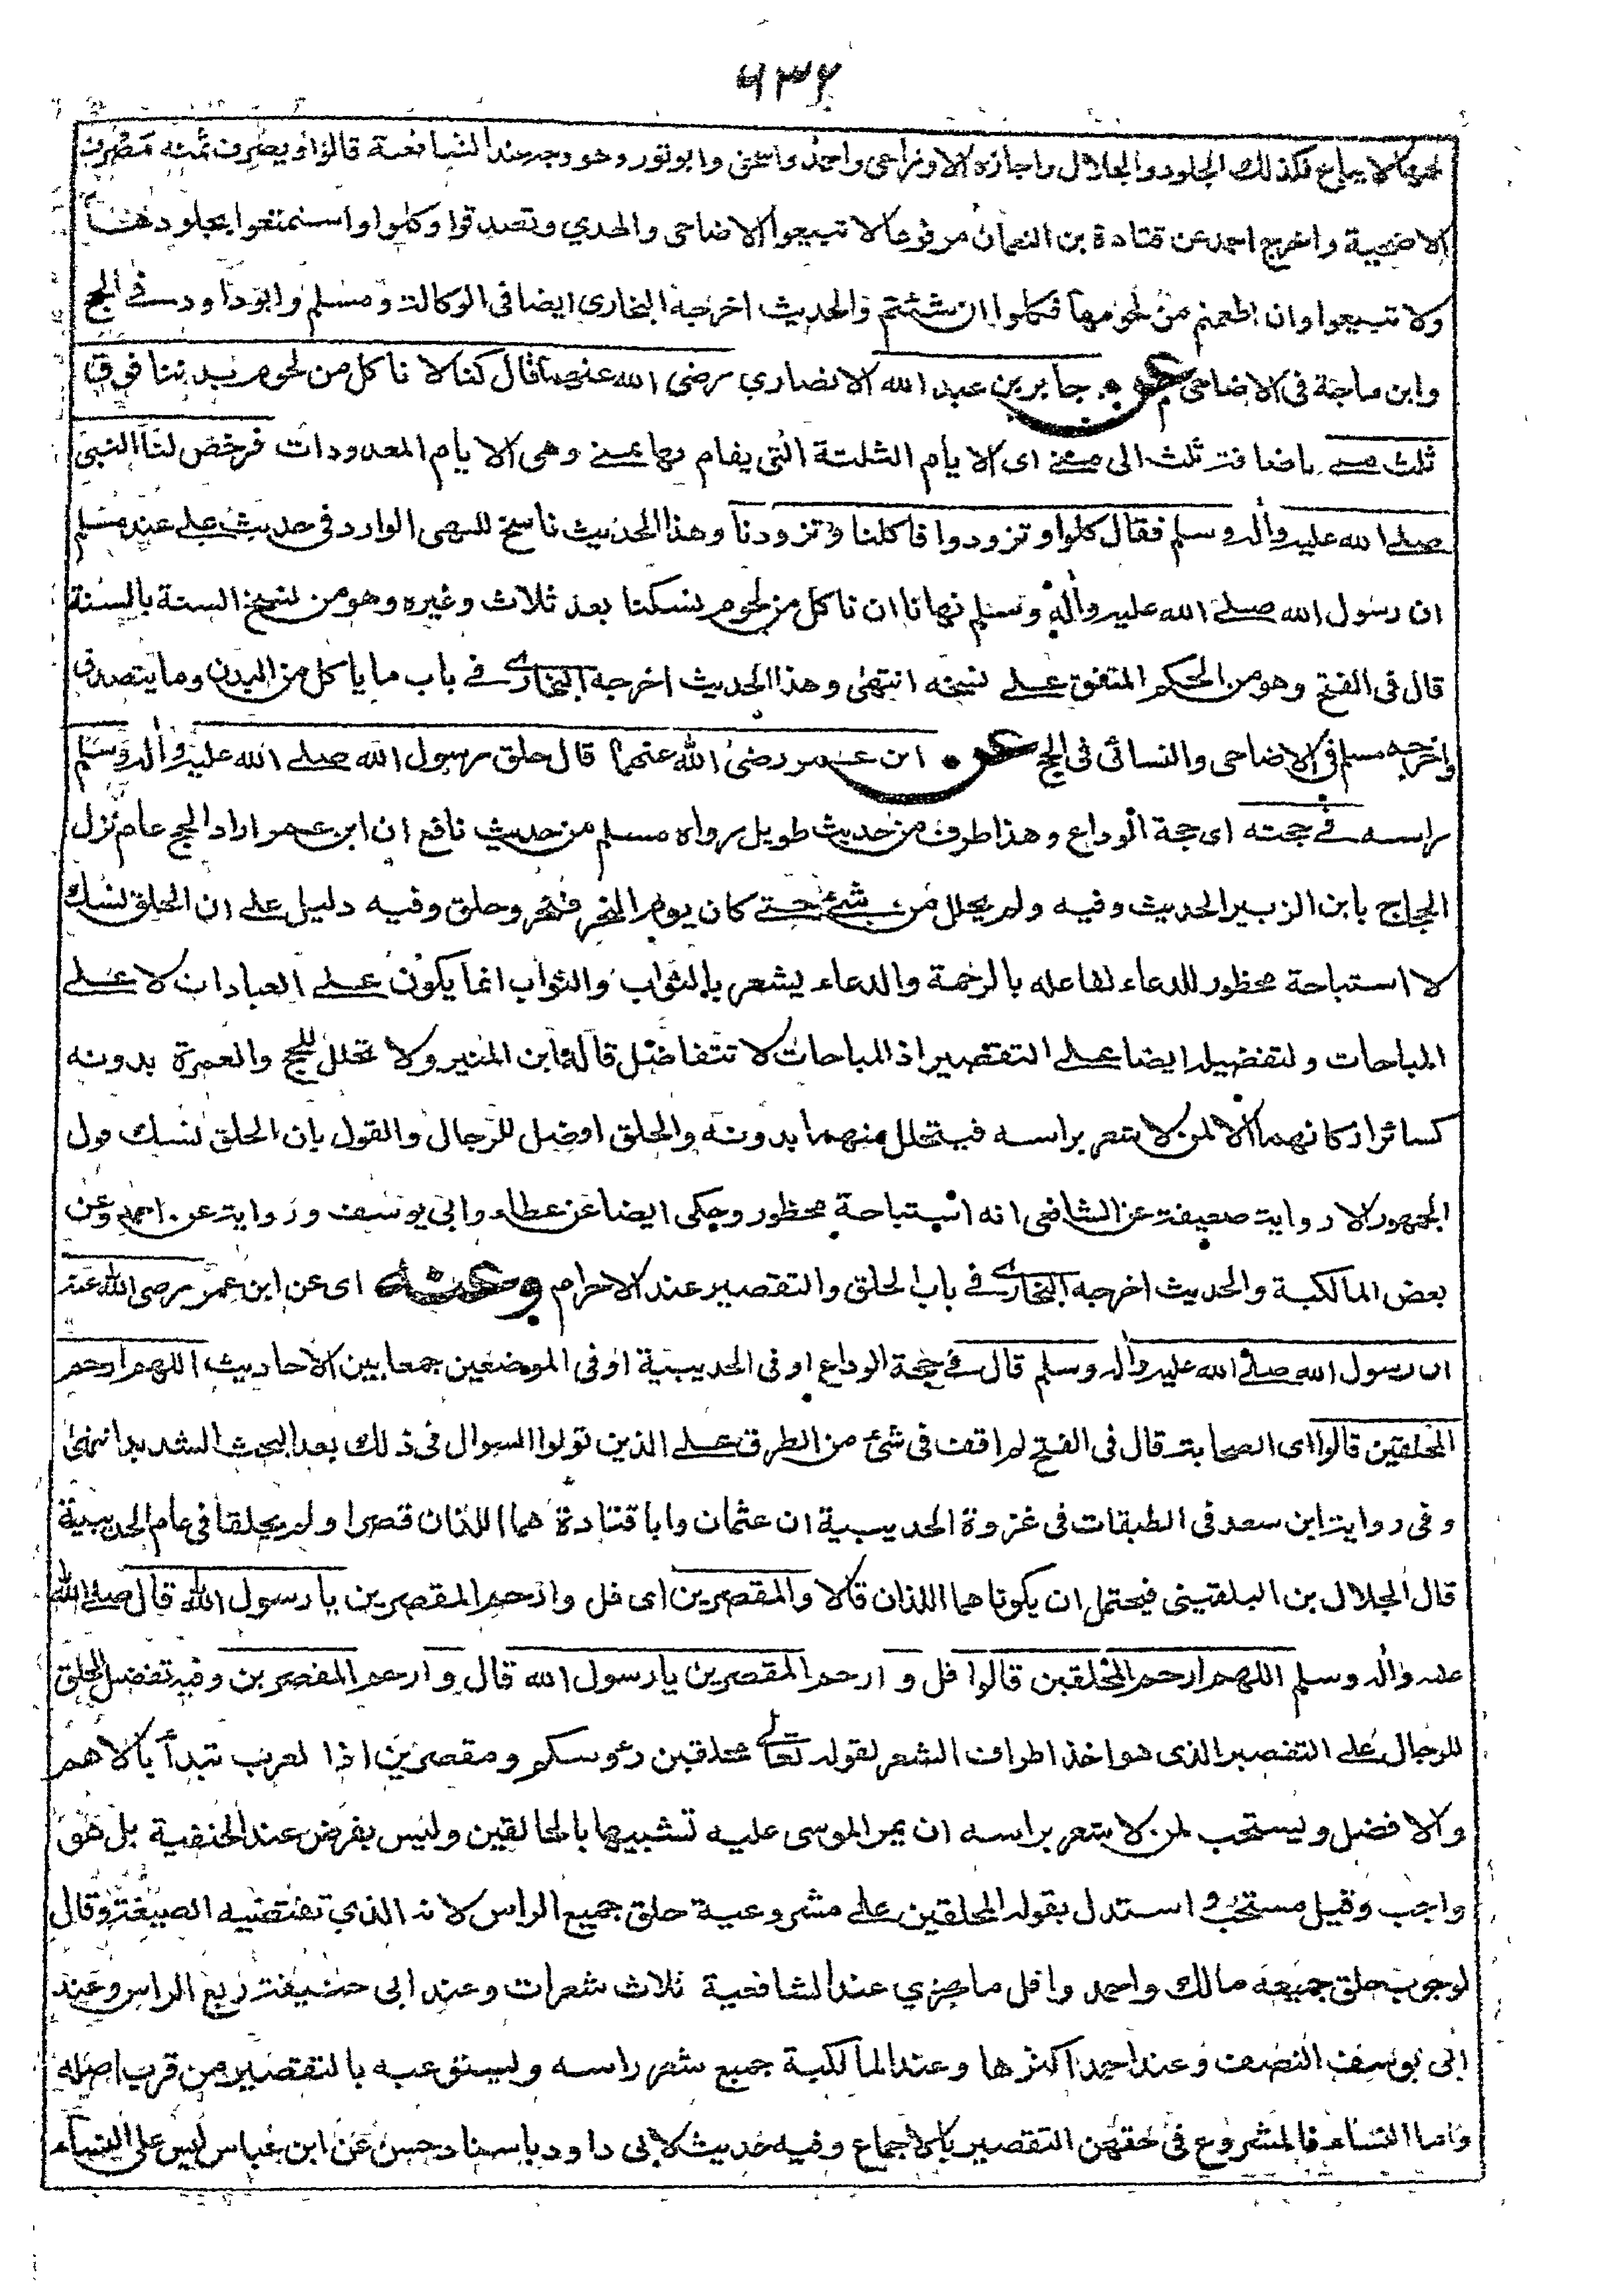 ٦٣٦
لحمها لا يباع فكذلك الجلود والجلال واجازه الاوزاعى واحمد واسحق وابو ثور وهو وجه عند الشافعية قالوا ويصرف ثمنه مصرف
الاضحية واخرج احمد عن قتادة بن النعمان مرفوعا لا تبيعوا الاضاحى والهدي وتصدقوا وكلوا واستمتعوا بجلودها
ولا تبيعوا وان اطعمتم من لحومها فكلوا ان شئتم والحديث اخرجه البخارى ايضا فى الوكالة ومسلم وابو داود فى الحج
وابن ماجة فى الاضاحى عن جابر بن عبد الله الانصاري رضى الله عنهما قال كنا لا ناكل من لحوم بدننا فوق
ثلث منے باضافة ثلث الى منے اى الايام الثلثة التى يقام بها بمنے وهى الايام المعدودات فرخص لنا النبى
صلے الله عليه واله وسلم فقال كلوا وتزودوا فاكلنا وتزودنا وهذا الحديث ناسخ للنهى الوارد فى حديث علے عند مسلم
ان رسول الله صلے الله عليه واله وسلم نهانا ان ناكل من لحوم نسكنا بعد ثلاث وغيره وهو من نسخ السنة بالسنة
قال فى الفتح وهو من الحكم المتفق علے نسخه انتهى وهذا الحديث اخرجه البخارى فے باب ما ياكل من البدن وما يتصدق
واخرجه مسلم فى الاضاحى والنسائى فى الحج عن ابن عمر رضى الله عنهما قال حلق رسول الله صلے الله عليه واله وسلم
راسه فے حجته اى حجة الوداع وهذا طرف من حديث طويل رواه مسلم من حديث نافع ان ابن عمر اراد الحج عام نزل
الحجاج بابن الزبير الحديث وفيه ولم يحلل من شئ حتے كان يوم النحر فنحر وحلق وفيه دليل علے ان الحلق نسك
لا استباحة محظور للدعاء لفاعله بالرحمة والدعاء يشعر بالثواب والثواب انما يكون علے العبادات لا علے
المباحات ولتفضيله ايضا علے التقصير اذ المباحات لا تتفاضل قاله ابن المنير ولا تحلل للحج والعمرة بدونه
كسائر اركانهما الا لمن لا شعر براسه فيتحلل منهما بدونه والحلق افضل للرجال والقول بان الحلق نسك قول
الجمهور الا رواية ضعيفة عن الشافعى انه استباحة محظور وحكى ايضا عن عطاء وابى يوسف ورواية عن احمد وعن
بعض المالكية والحديث اخرجه البخارى فے باب الحلق والتقصير عند الاحرام وعنه اى عن ابن عمر رضى الله عنه
ان رسول الله صلے الله عليه واله وسلم قال فے حجة الوداع او فى الحديبية او فى الموضعين جمعا بين الاحاديث اللهم ارحم
المحلقين قالوا اى الصحابة قال فى الفتح لم اقف فى شئ من الطرق علے الذين تولوا السوال فى ذلك بعد البحث الشديد انتهى
وفى رواية ابن سعد فى الطبقات فى غزوة الحديبية ان عثمان وابا قتادة هما اللذان قصرا ولم يحلقا فى عام الحديبية
قال الجلال بن البلقينى فيحتمل ان يكونا هما اللذان قالا والمقصرين اى قل وارحم المقصرين يا رسول الله قال صلے الله
عليه واله وسلم اللهم ارحم المحلقين قالوا قل و ارحم المقصرين يا رسول الله قال و ارحم المقصرين وفيه تفضيل الحلق
للرجال علے التقصير الذى هو اخذ اطراف الشعر لقوله تعالے محلقين رءوسكم ومقصرين اذا لعرب تبدأ بالاهم
والافضل ويستحب لمن لا شعر براسه ان يمر الموسى عليه تشبيها بالحالقين وليس بفرض عند الحنفية بل هو
واجب وقيل مستحب و استدل بقوله المحلقين علے مشروعية حلق جميع الراس لانه الذي تقتضيه الصيغة وقال
لوجوب حلق جميعه مالك واحمد واقل ما يجزي عند الشافعية ثلاث شعرات وعند ابى حنيفة ربع الراس وعند
ابى يوسف النصف وعند احمد اكثرها وعند المالكية جميع شعر راسه ويستوعبه بالتقصير من قرب اصله
واما النساء فالمشروع فى حقهن التقصير بالاجماع وفيه حديث لابى داود باسناد حسن عن ابن عباس ليس على النساء